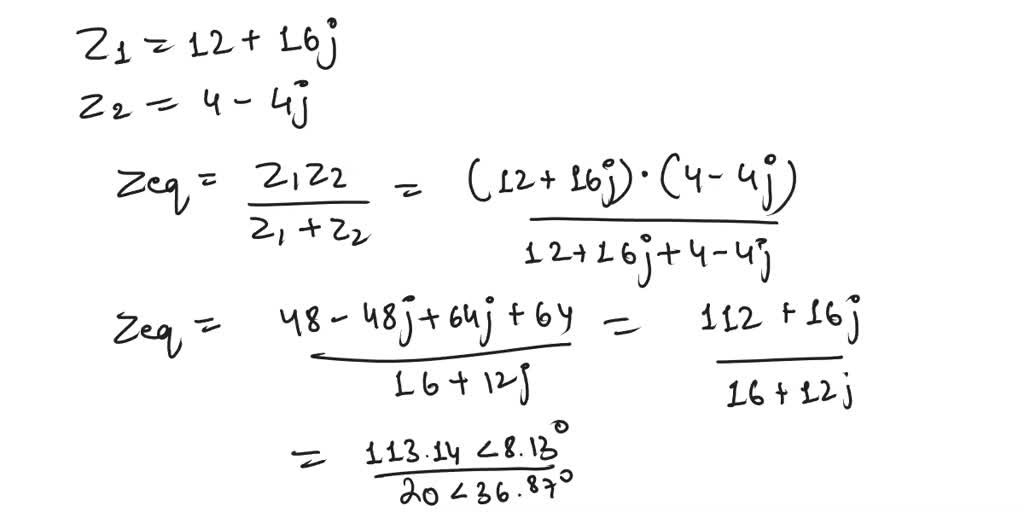 Z1 = 12 + 16j
Z2 = 4 - 4j
Zeq = Z1Z2 / Z1 + Z2 = (12 + 16j) · (4 - 4j) / 12 + 16j + 4 - 4j
Zeq = 48 - 48j + 64j + 64 / 16 + 12j = 112 + 16j / 16 + 12j
= 113.14 < 8.13° / 20 < 36.87°